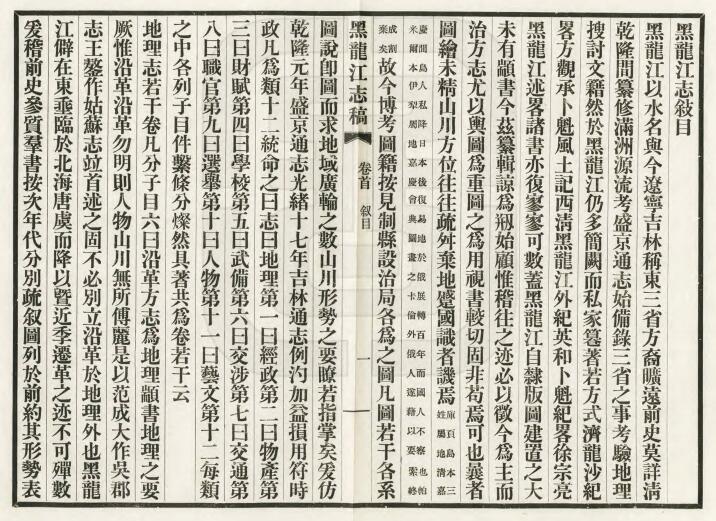 黑龍江志敍目
黑龍江以水名與今遼寧吉林稱東三省方裔曠遠前史莫詳清
乾隆間纂修滿洲源流考盛京通志始備錄三省之事考驗地理
搜討文籍然於黑龍江仍多簡闕而私家簒著若方式濟龍沙紀
畧方觀承卜魁風土記西清黑龍江外紀英和卜魁紀畧徐宗亮
黑龍江述畧諸書亦復寥寥可數蓋黑龍江自隸版圖建置之大
未有顓書今茲纂輯諒爲刱始顧惟稽往之迹必以徵今爲主而
治方志尤以輿圖爲重圖之爲用視書較切固非苟焉可也曩者
圖繪未精山川方位往往疏舛棄地蹙國識者譏焉庫頁島本三姓屬地清嘉
慶間島人私降日本後復易地於俄展轉百年而國人不察也帕
米爾本伊犁屬地嘉慶會典圖畫之卡倫外俄人遂藉以要索終
成割棄矣故今博考圖籍按見制縣設治局各爲之圖凡圖若干各系
黑龍江志稿 卷首 敍目 一
圖說卽圖而求地域廣輪之數山川形勢之要瞭若指掌矣爰仿
乾隆元年盛京通志光緒十七年吉林通志例汋加益損用符時
政凡爲類十二統命之曰志曰地理第一曰經政第二曰物產第
三曰財賦第四曰學校第五曰武備第六曰交涉第七曰交通第
八曰職官第九曰選舉第十曰人物第十一曰藝文第十二每類
之中各列子目件繫條分燦然具著共爲卷若干云
地理志若干卷凡分子目六曰沿革方志爲地理顓書地理之要
厥惟沿革沿革勿明則人物山川無所傅麗是以范成大作吳郡
志王鏊作姑蘇志竝首述之固不必別立沿革於地理外也黑龍
江僻在東垂臨於北海唐虞而降以曁近季遷革之迹不可殫數
爰稽前史參質羣書按次年代分別疏敘圖列於前約其形勢表